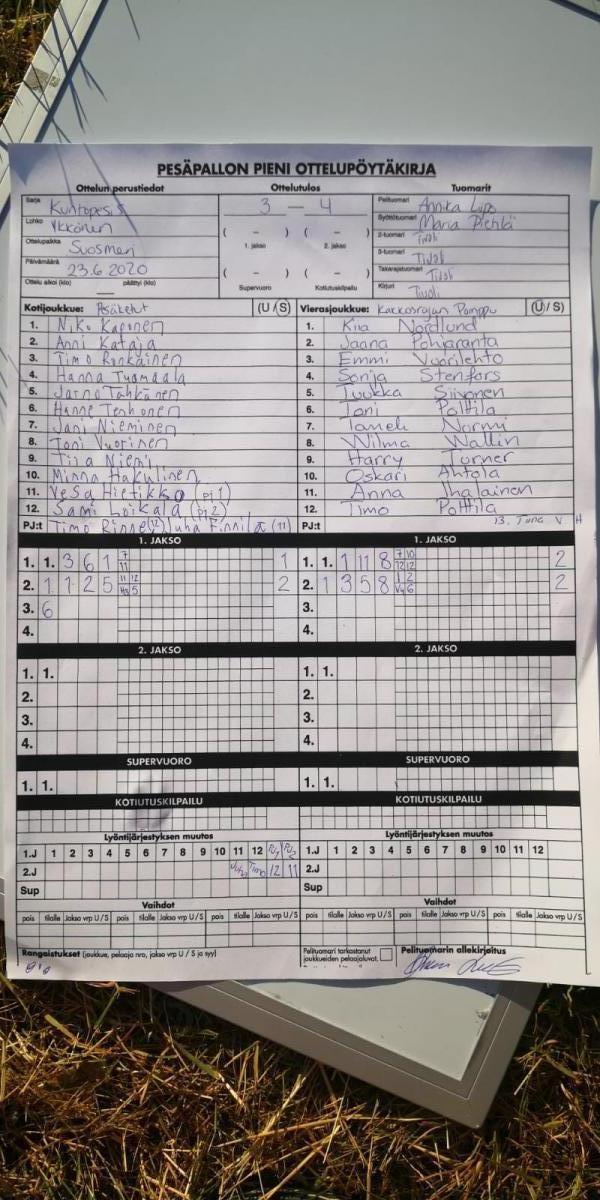 PESÄPALLON PIENI OTTELUPÖYTÄKIRJA
Ottelun perustiedot Ottelutulos Tuomarit
Sarja Kuntopesis 3 — 4 Pelituomari Annika Lipo
Lohko Ykkönen Syöttötuomari Maria
Ottelupaikka Suosmeri ( – ) ( – ) 2-tuomari Tivoli
1. jakso 2. jakso 3-tuomari Tivoli
Päivämäärä 23.6 2020 ( – ) ( – ) Takarajatuomari Tivoli
Ottelu alkoi (klo) päättyi (klo) Supervuoro Kotiutuskilpailu Kirjuri Tivoli
Kotijoukkue: Pesäkelut (U/S) Vierasjoukkue: Kakkosrajan Pamppu (U/S)
1. Niko Kaponen 1. Kiia Nordlund
2. Anni Kataja 2. Jaana Pohjaranta
3. Timo Ronkainen 3. Emmi Vuorilehto
4. Hanna Tuomaala 4. Sonja Stenfors
5. Jarno Tähkänen 5. Tuukka Siivonen
6. Hanne Tenhonen 6. Toni Polttila
7. Jani Nieminen 7. Taneli Normi
8. Toni Vuorinen 8. Wilma Wallin
9. Tiia Niemi 9. Harry Turner
10. Minna Hakulinen 10. Oskari Ahtola
11. Vesa Hietikko (pj 1) 11. Anna Ihalainen
12. Sami Loikala (pj 2) 12. Timo Polttila
PJ:t Timo Rinne (12) Juha Finnilä (11) PJ:t 13. Timo V H
1. JAKSO 1. JAKSO
1. 1. 3 6 1 7 11 1 1. 1. 1 1 8 7 10 12 12 2
2. 1 1 2 5 11 12 5 2 2. 1 3 5 8 1 2 6 2
3. 6 3.
4. 4.
2. JAKSO 2. JAKSO
1. 1. 1. 1.
2. 2.
3. 3.
4. 4.
SUPERVUORO SUPERVUORO
1. 1. 1. 1.
KOTIUTUSKILPAILU KOTIUTUSKILPAILU
Lyöntijärjestyksen muutos Lyöntijärjestyksen muutos
1.J 1 2 3 4 5 6 7 8 9 10 11 12 PJ1 PJ2 1.J 1 2 3 4 5 6 7 8 9 10 11 12
2.J Juha Timo 12 11 2.J
Sup Sup
Vaihdot Vaihdot
pois tilalle Jakso vrp U/S pois tilalle Jakso vrp U/S pois tilalle Jakso vrp U/S pois tilalle Jakso vrp U/S pois tilalle Jakso vrp U/S pois tilalle Jakso vrp U/S
Rangaistukset (joukkue, pelaaja nro, jakso vrp U / S ja syy) Pelituomari tarkastanut joukkueiden pelaajaluvat. Pelituomarin allekirjoitus